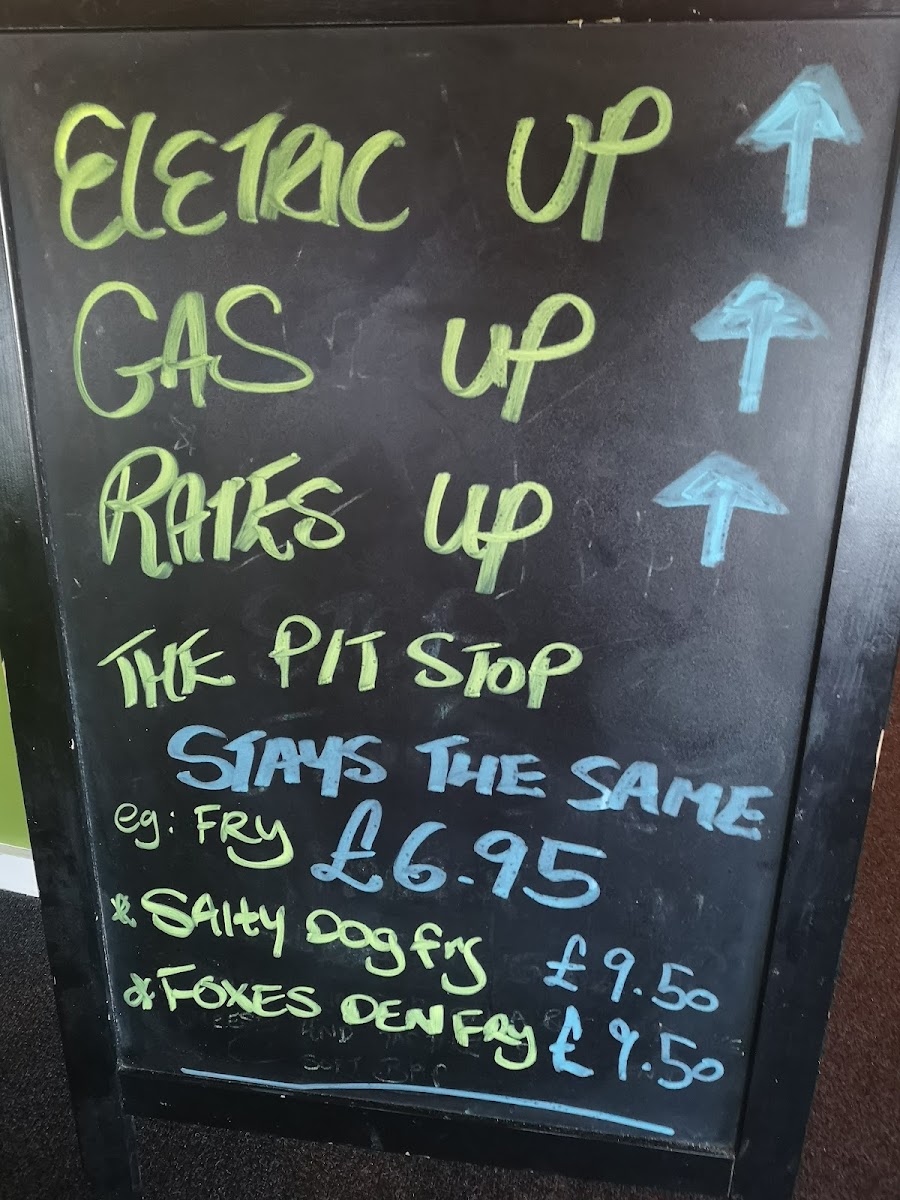 ELETRIC UP ↑
GAS UP ↑
RATES UP ↑
THE PIT STOP
STAYS THE SAME
eg: FRY £6.95
* SAlty DOg fry £9.50
* FOXES DEN FRy £9.50